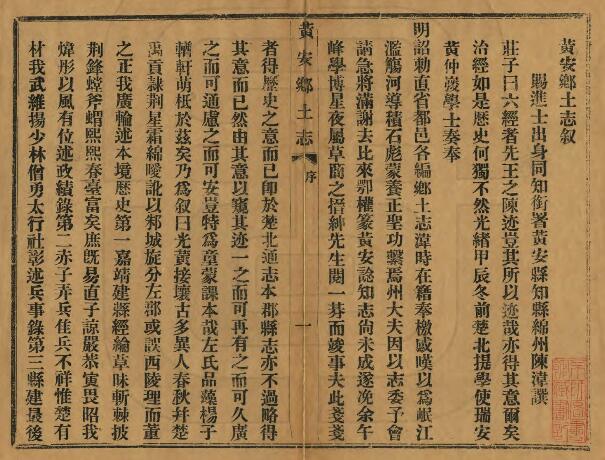 黃安鄉土志敘
賜進士出身同知銜署黃安縣知縣綿州陳漳撰
莊子曰六經者先王之陳迹豈其所以迹哉亦得其意爾矣
治經如是歷史何獨不然光緒甲辰冬前楚北提學使瑞安
黃仲弢學士奏奉
明詔勅直省都邑各編鄉土志漳時在籍奉檄感嘆以為岷江
濫觴河導積石彪蒙養正聖功繫焉州大夫因以志委予會
請急將滿謝去比來鄂權篆黃安諗知志尚未成遂俛余午
峰學博星夜屬草商之搢紳先生閱一朞而竣事夫此戔戔
者得歷史之意而已卽於楚北通志本郡縣志亦不過略得
其意而已然由其意以窺其迹一之而可再有之而可久廣
之而可通慮之而可安豈特爲童蒙課本哉左氏品藻楊子
輶軒萌柢於茲矣乃爲叙曰光黃接壤古多異人春秋弁楚
禹貢隸荆星霜綿曖訛以邾城旋分左部或誤西陵理而董
之正我廣輪述本境歷史第一嘉靖建縣經綸草昧斬棘披
荆鋒螳斧蝟熙熙春臺富矣庶旣易直子諒嚴恭寅畏昭我
煒彤以風有位述政績錄第二赤子弄兵隹兵不祥惟楚有
材我武維揚少林僧勇太行社彰述兵事錄第三縣建最後
黃安鄉土志
序
一